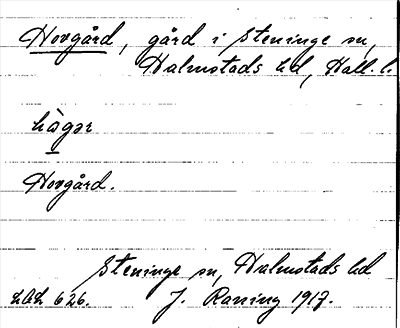 Hovgård, gård i Steninge sn,
Halmstads hd, Hall. l.
hàgər
Hovgård.
Steninge sn, Halmstads hd
LAL 626. J. Raning 1917.